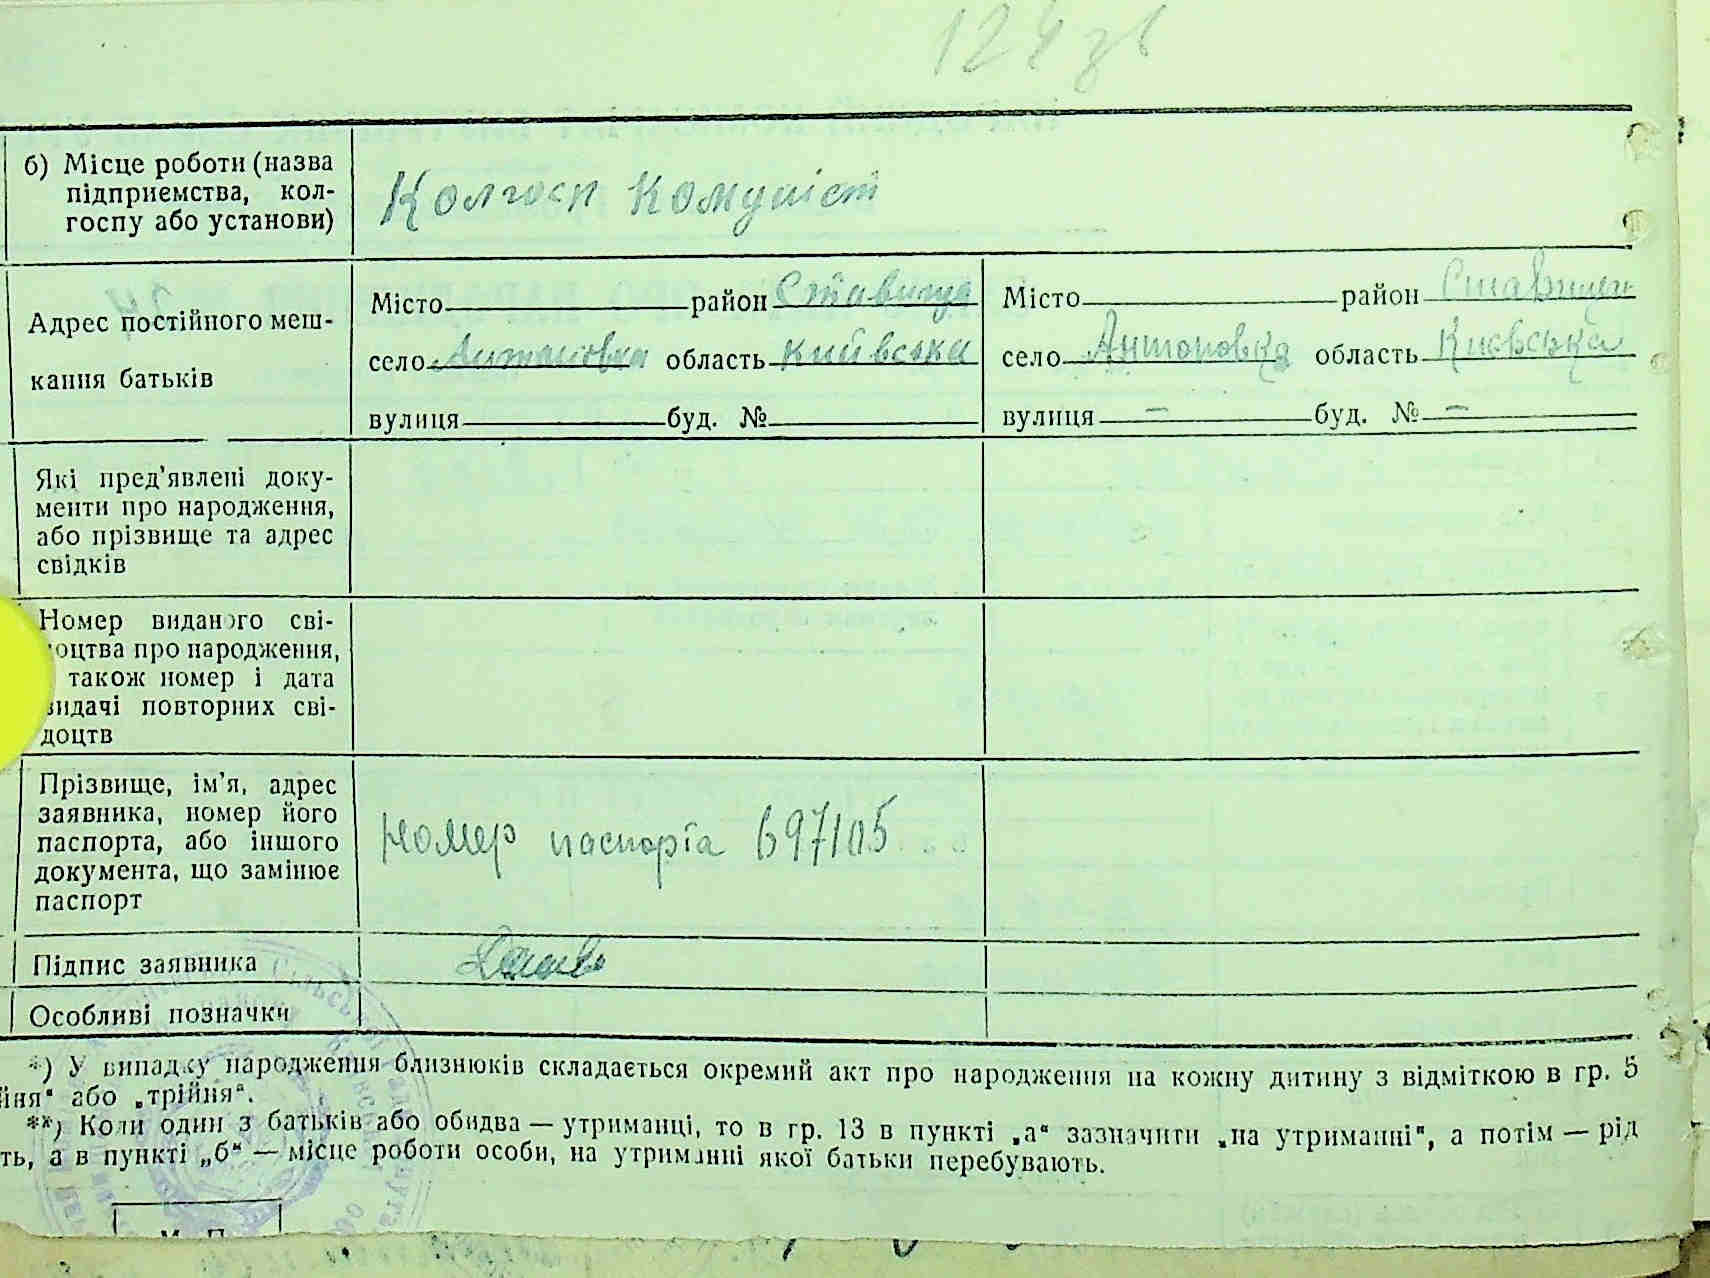 124 зв
б) Місце роботи (назва
підприємства, кол-
госпу або установи)
Колгосп Комуніст
Адрес постійного меш-
кання батьків
Місто район Ставище
село Антоновка область Київська
вулиця буд. №
Місто район Ставищен
село Антоновка область Киевська
вулиця — буд. № —
Які пред'явлені доку-
менти про народження,
або прізвище та адрес
свідків
Номер виданого сві-
оцтва про народження,
також номер і дата
видачі повторних сві-
доцтв
Прізвище, ім'я, адрес
заявника, номер його
паспорта, або іншого
документа, що замінює
паспорт
Номер паспорта 697105
Підпис заявника
Особливі позначки
*) У випадку народження близнюків складається окремий акт про народження на кожну дитину з відміткою в гр. 5
йня“ або „трійня“.
**) Коли один з батьків або обидва — утриманці, то в гр. 13 в пункті „а“ зазначити „на утриманні“, а потім — рід
ть, а в пункті „б“ — місце роботи особи, на утриманні якої батьки перебувають.
М. П.